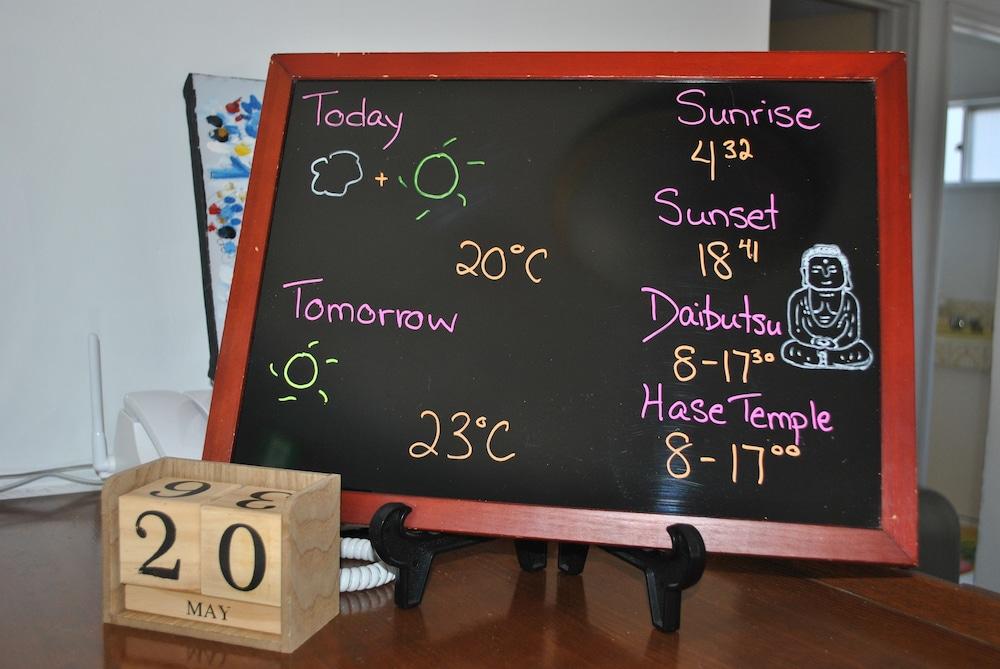 Today
+
20°C
Tomorrow
23°C
Sunrise
4³²
Sunset
18⁴¹
Daibutsu
8-17³⁰
Hase Temple
8-17⁰⁰
9 3
20
MAY